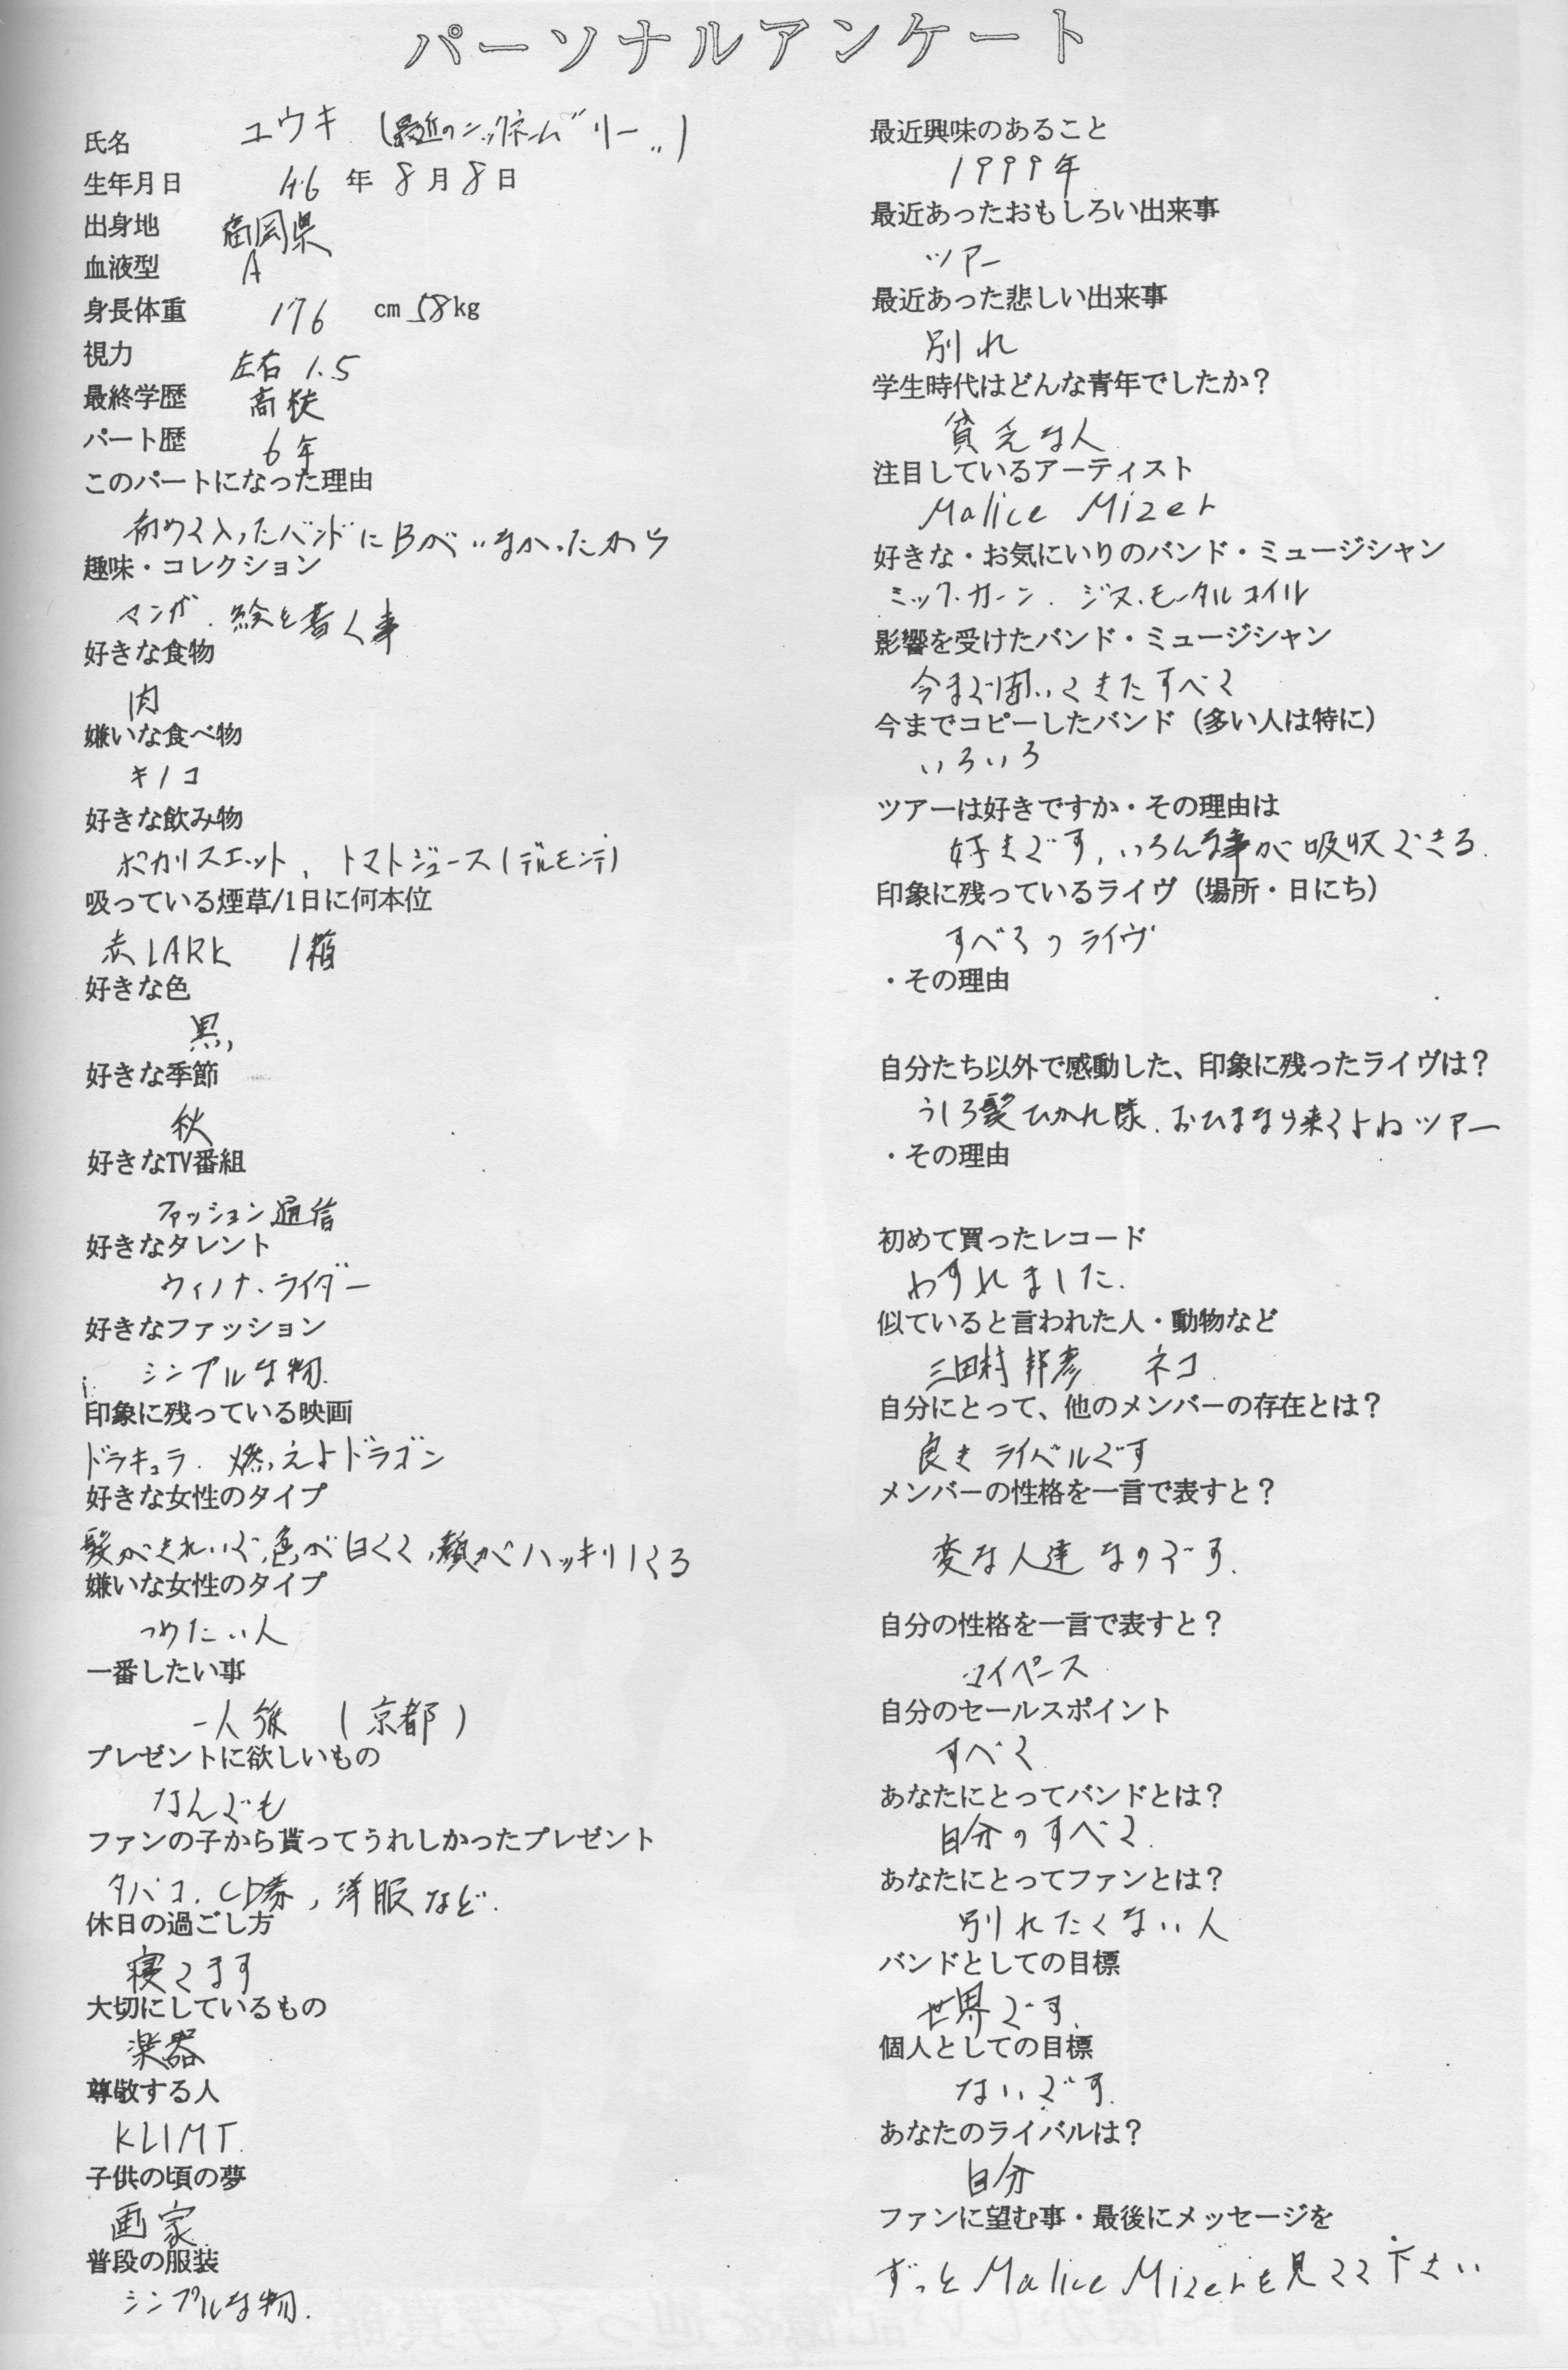 パーソナルアンケート
氏名 ユウキ (最近のニックネーム"リー")
生年月日 46年8月8日
出身地 福岡県
血液型 A
身長体重 176 cm 58kg
視力 左右 1.5
最終学歴 高校
パート歴 6年
このパートになった理由
初めて入ったバンドにBがいなかったから
趣味・コレクション
マンガ、絵を書く事
好きな食物
肉
嫌いな食べ物
キノコ
好きな飲み物
ポカリスエット、トマトジュース(デルモンテ)
吸っている煙草/1日に何本位
赤LARK 1箱
好きな色
黒,
好きな季節
秋
好きなTV番組
ファッション通信
好きなタレント
ウィノナ・ライダー
好きなファッション
シンプルな物.
印象に残っている映画
ドラキュラ. 燃えよドラゴン
好きな女性のタイプ
髪がきれいで,色が白くて,顔がハッキリしてる
嫌いな女性のタイプ
つめたい人
一番したい事
一人旅 (京都)
プレゼントに欲しいもの
なんでも
ファンの子から貰ってうれしかったプレゼント
タバコ. CD券, 洋服など.
休日の過ごし方
寝てます
大切にしているもの
楽器
尊敬する人
KLIMT.
子供の頃の夢
画家.
普段の服装
シンプルな物.
最近興味のあること
1999年
最近あったおもしろい出来事
ツアー
最近あった悲しい出来事
別れ
学生時代はどんな青年でしたか？
貧乏な人
注目しているアーティスト
Malice Mizer
好きな・お気にいりのバンド・ミュージシャン
ミック・カーン. ジス・モータルコイル
影響を受けたバンド・ミュージシャン
今まで聞いてきたすべて
今までコピーしたバンド（多い人は特に）
いろいろ
ツアーは好きですか・その理由は
好きです, いろんな事が吸収できる.
印象に残っているライヴ（場所・日にち）
すべてのライヴ
・その理由
自分たち以外で感動した、印象に残ったライヴは？
うしろ髪ひかれ隊. おひまなら来てよねツアー
・その理由
初めて買ったレコード
わすれました.
似ていると言われた人・動物など
三田村邦彦 ネコ
自分にとって、他のメンバーの存在とは？
良きライバルです
メンバーの性格を一言で表すと？
変な人達なのです.
自分の性格を一言で表すと？
マイペース
自分のセールスポイント
すべて
あなたにとってバンドとは？
自分のすべて.
あなたにとってファンとは？
別れたくない人
バンドとしての目標
世界です.
個人としての目標
ないです.
あなたのライバルは？
自分
ファンに望む事・最後にメッセージを
ずっとMalice Mizerを見てて下さい